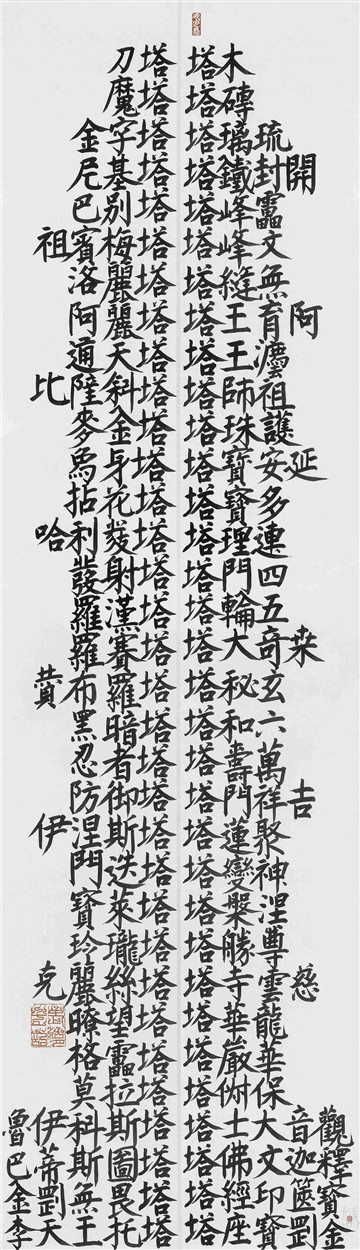 觀釋寶金
開阿延桑吉慈音迦篋劉
琉封靈文無育灋祖護安多連四五奇玄六萬祥聚神涅尊雲龍華保大文印寶
木磚璃鐵峰峰縫王王師珠寶寶理門輪大秘和壽門蓮變槃勝寺華嚴士佛經座
塔塔塔塔塔塔塔塔塔塔塔塔塔塔塔塔塔塔塔塔塔塔塔塔塔塔塔塔塔塔塔塔塔
塔塔塔塔塔塔塔塔塔塔塔塔塔塔塔塔塔塔塔塔塔塔塔塔塔塔塔塔塔塔塔塔塔
刀魔字基別梅麗麗天斜金身花發射漢賽羅暗者御斯迭萊瓏絲望靈拉斯圖畏托
金尼巴賓洛阿通陸麥馬拈利發羅羅布黑忍防涅門寶玲麗暸格莫科斯無王
祖比哈贊伊克伊蒂劉天
魯巴金李